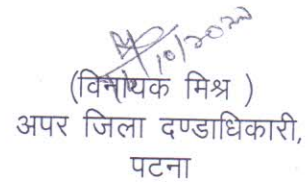 10/2020
(विनायक मिश्र )
अपर जिला दण्डाधिकारी,
पटना